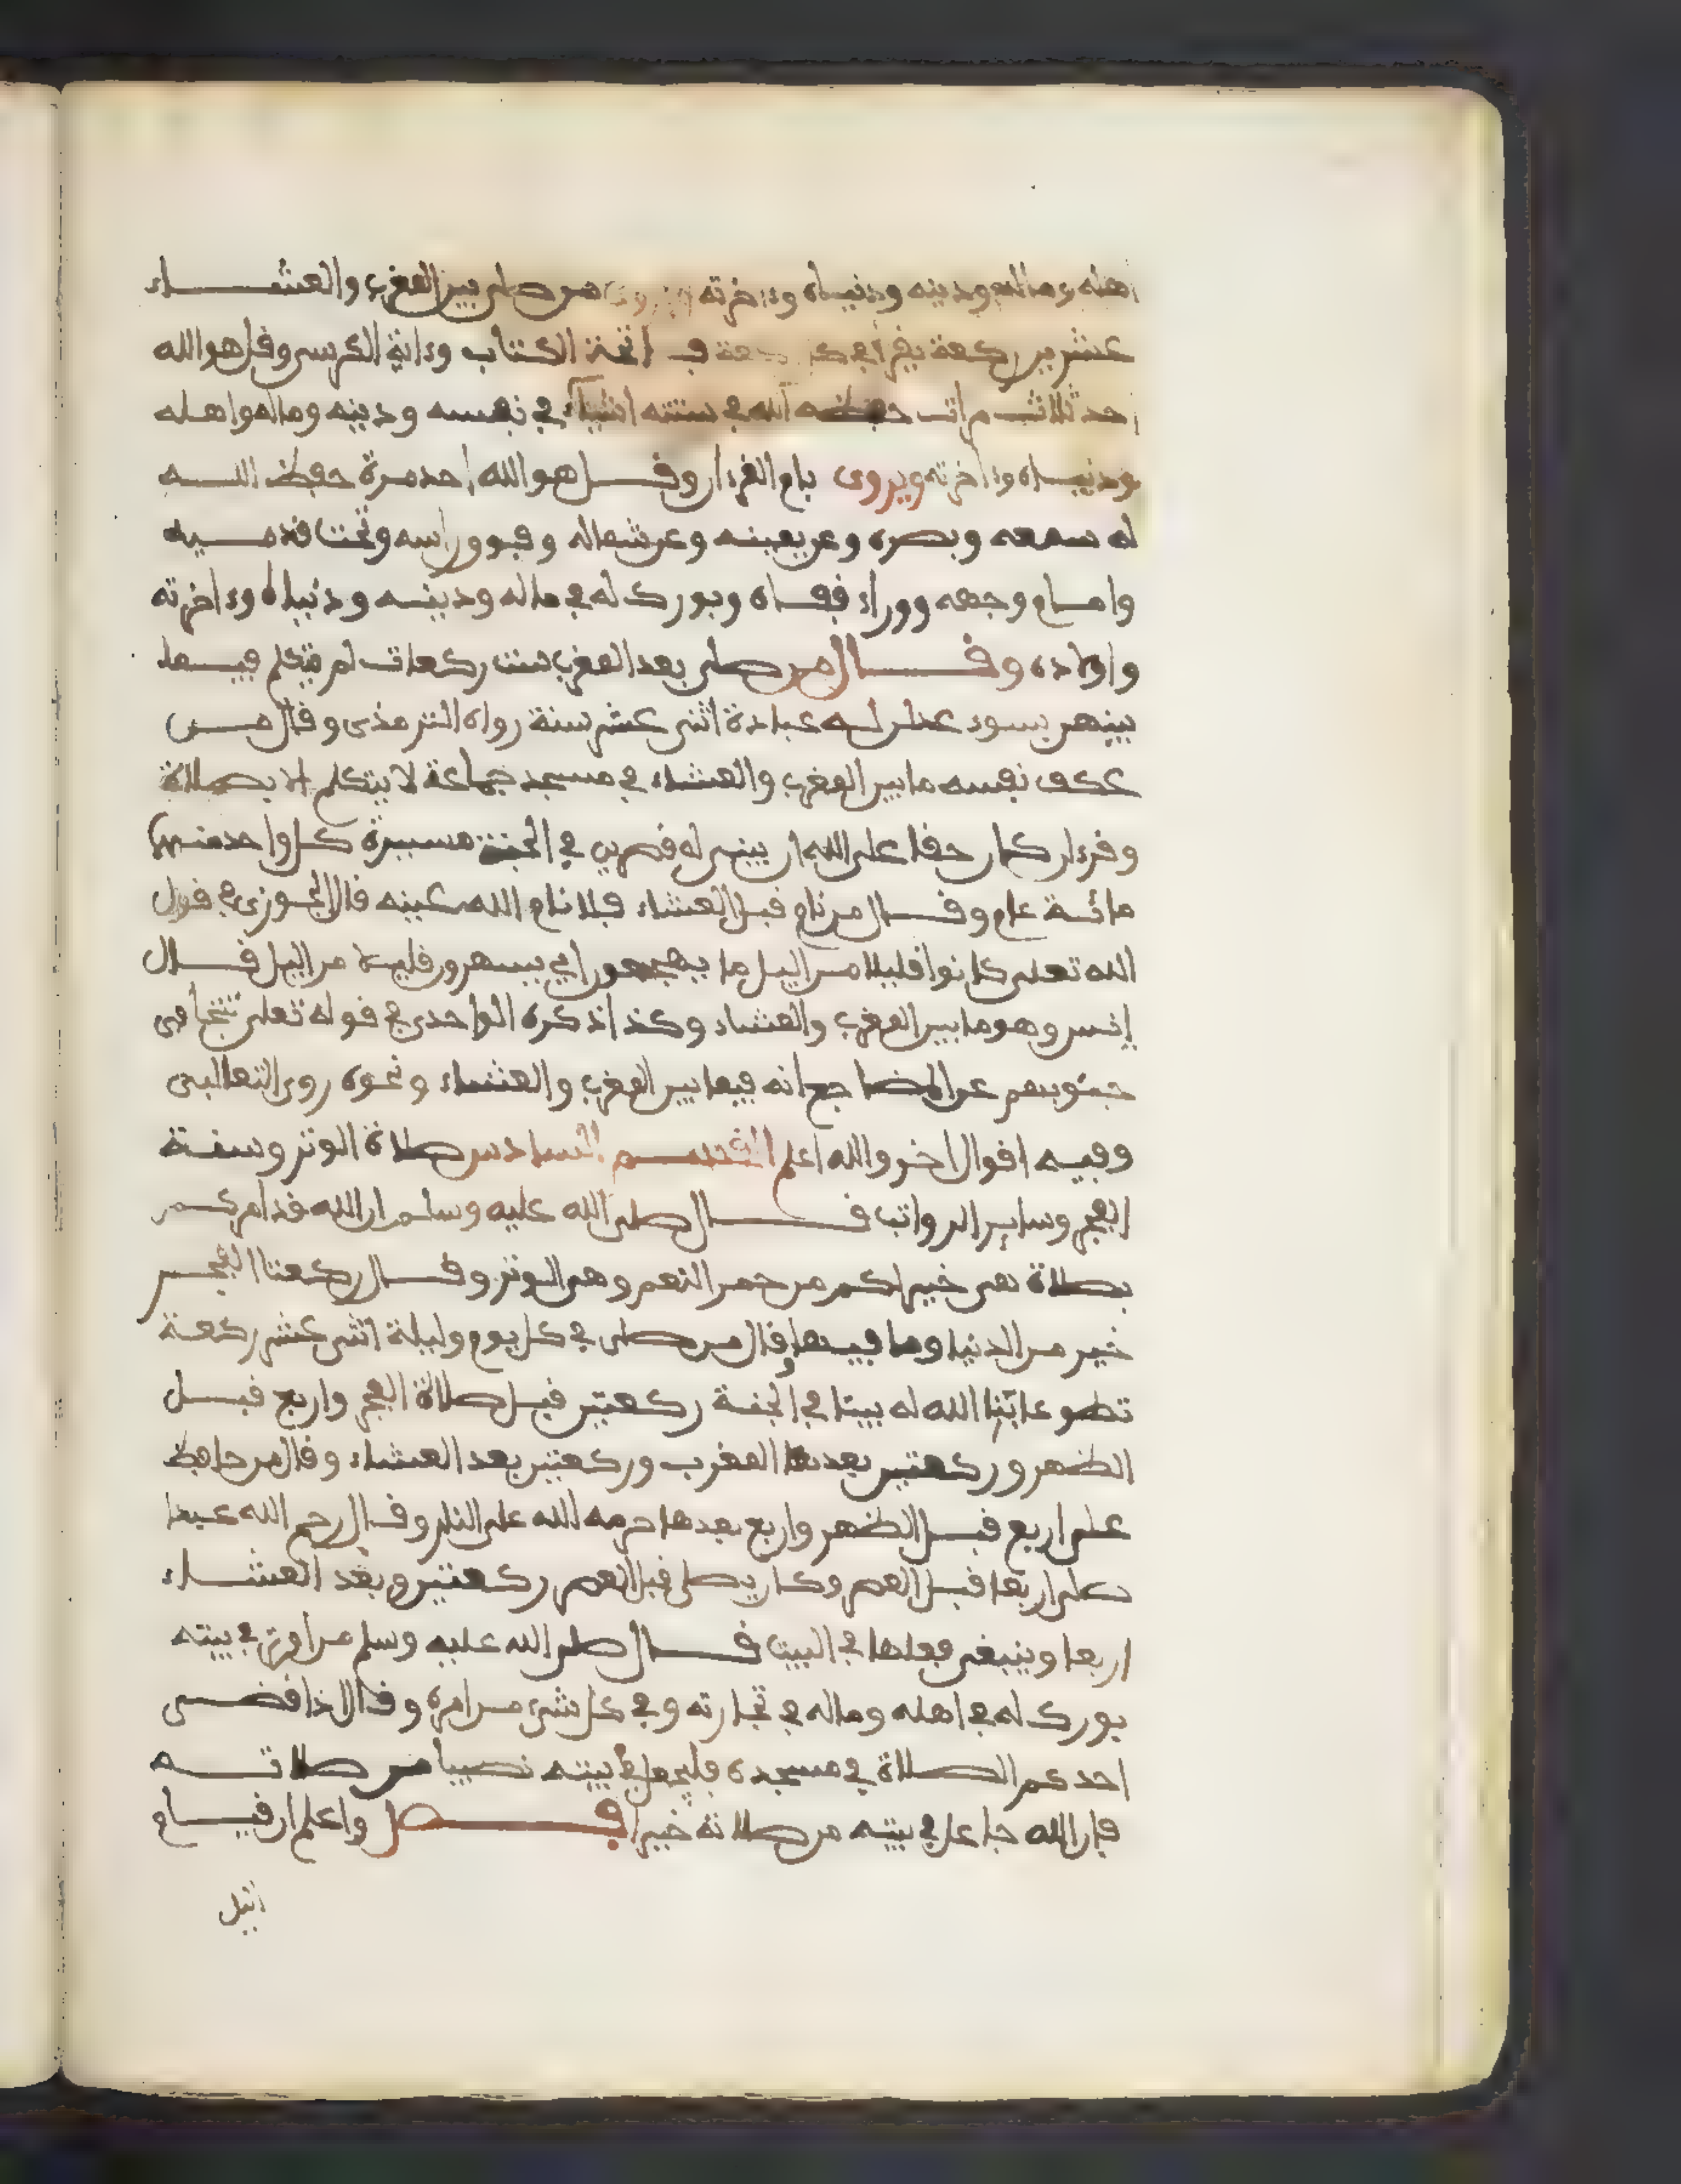 اهله وماله ودينه ودنياه وءاخرته من صلى بين المغرب والعشاء
عشرين ركعة يقرأ في كل ركعة فاتحة الكتاب وءاية الكرسي وقل هو الله
احد ثلاث مرات حفظه الله في ستة اشياء في نفسه ودينه وماله واهله
ودنياه وءاخرته ويروى بام القرءان وقل هو الله احد مرة حفظ الله
له سمعه وبصره وعن يمينه وعن شماله وفوق راسه وتحت قدميه
وامام وجهه ووراء قفاه وبورك له في ماله ودينه ودنياه وءاخرته
واولاده وقال من صلى بعد المغرب ست ركعات لم يتكلم فيما
بينهن بسوء عدلن له عبادة اثنى عشر سنة رواه الترمذي وقال من
عكف نفسه ما بين المغرب والعشاء في مسجد جماعة لا يتكلم الا بصلاة
وقرءان كان حقا على الله ان يبنى له قصرين في الجنة مسيرة كل واحد منهما
مائة عام وقال من نام قبل العشاء فلا نام الله عينه قال الجوزي في قول
الله تعلى كانوا قليلا من اليل ما يهجعون اي يسهرون قليلا من اليل قال
انس وهو ما بين المغرب والعشاء وكذا ذكره الواحدي في قوله تعلى تتجافى
جنوبهم عن المضاجع انه فيما بين المغرب والعشاء ونحوه روى الثعالبي
وفيه اقوال اخر والله اعلم القسم السادس صلاة الوتر وسنة
الفجر وساير الرواتب قال صلى الله عليه وسلم ان الله قد امركم
بصلاة هي خير لكم من حمر النعم وهي الوتر وقال ركعتا الفجر
خير من الدنيا وما فيها وقال من صلى في كل يوم وليلة اثنى عشر ركعة
تطوعا بنا الله له بيتا في الجنة ركعتين قبل صلاة الفجر واربع قبل
الظهر وركعتين بعدها المغرب وركعتين بعد العشاء وقال من حافظ
على اربع قبل الظهر واربع بعدها حرمه الله على النار وقال رحم الله عبدا
صلى اربعا قبل العصر وكان يصلي قبل العصر ركعتين وبعد العشاء
اربعا وينبغي فعلها في البيت قال صلى الله عليه وسلم من اوتر في بيته
بورك له في اهله وماله في تجارته وفي كل شيء من امره وقال اذا قضى
احدكم الصلاة في مسجده فليجعل في بيته نصيبا من صلاته
فإن الله جاعل في بيته من صلاته خيرا فصل واعلم ان قيام
اليل